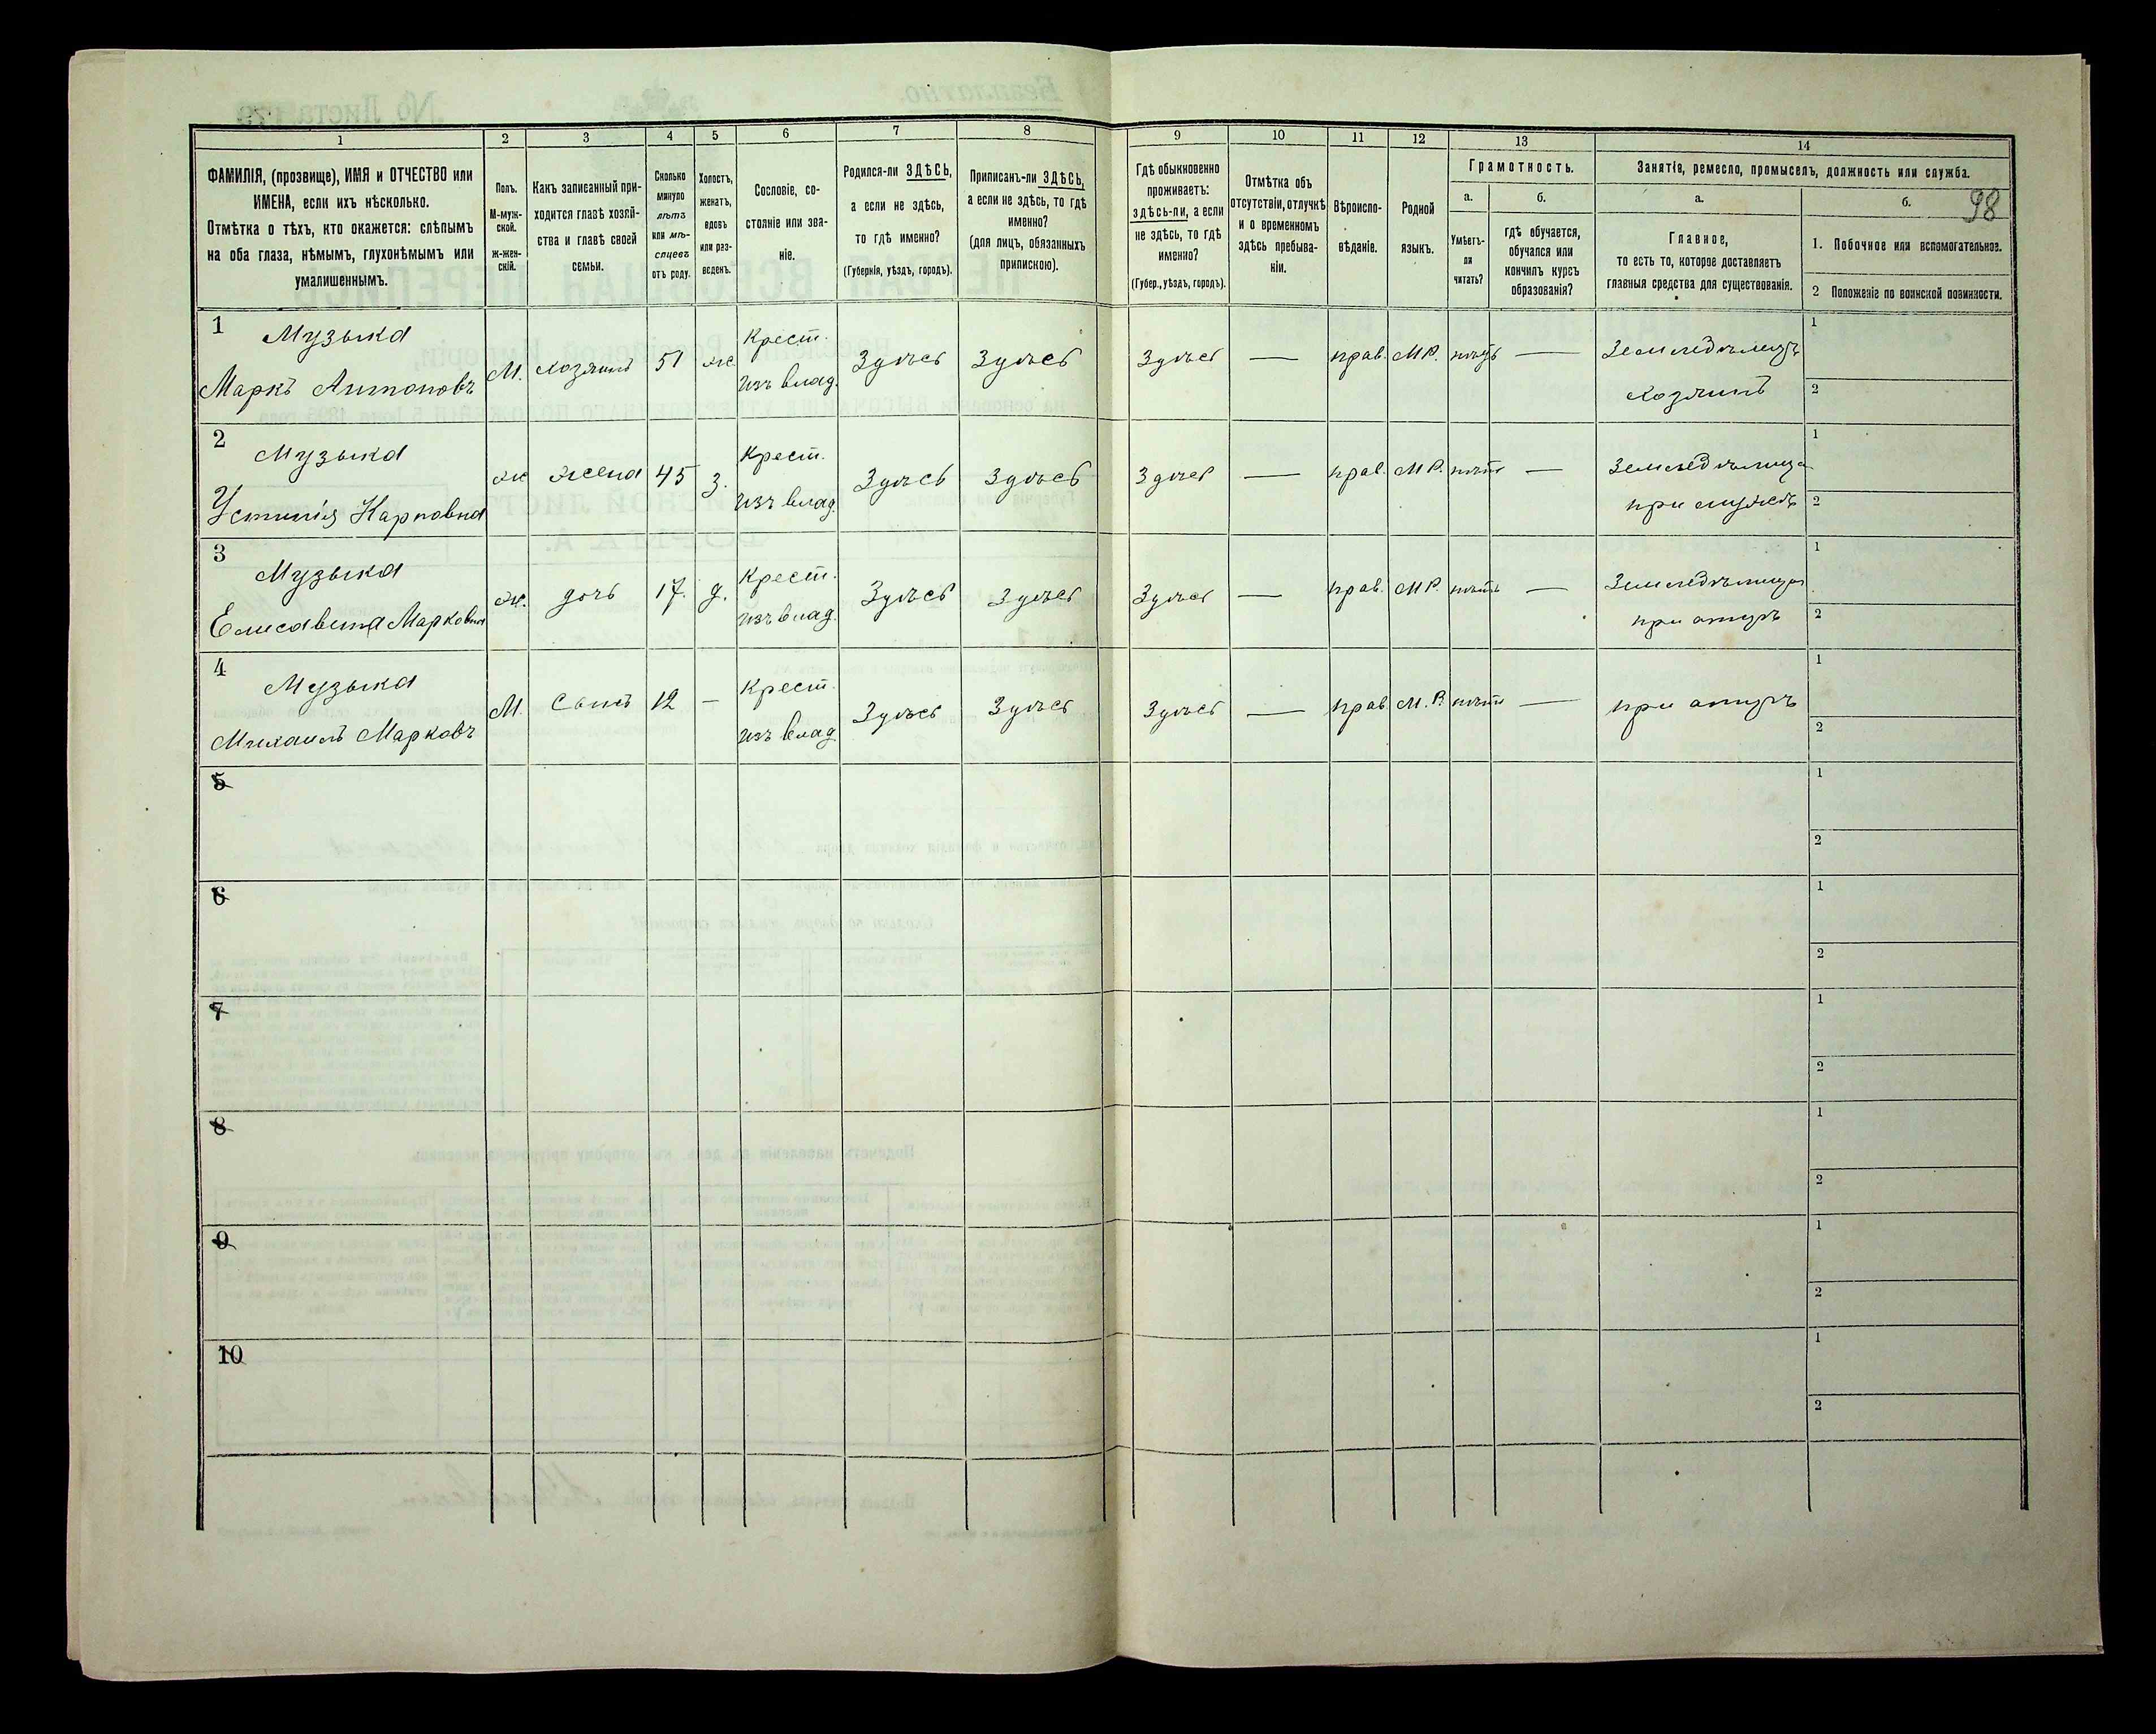 1 2 3 4 5 6 7 8 9 10 11 12 13 14
ФАМИЛІЯ, (прозвище), ИМЯ и ОТЧЕСТВО или
ИМЕНА, если ихъ нѣсколько.
Отмѣтка о тѣхъ, кто окажется: слѣпымъ
на оба глаза, нѣмымъ, глухонѣмымъ или
умалишеннымъ.
Полъ.
М-муж-
ской.
ж-жен-
скій.
Какъ записанный при-
ходится главѣ хозяй-
ства и главѣ своей
семьи.
Сколько
минуло
лѣтъ
или мѣ-
сяцевъ
отъ роду.
Холостъ,
женатъ,
вдовъ
или раз-
веденъ.
Сословіе, со-
стояніе или зва-
ніе.
Родился-ли ЗДѢСЬ,
а если не здѣсь,
то гдѣ именно?
(Губернія, уѣздъ, городъ).
Приписанъ-ли ЗДѢСЬ,
а если не здѣсь, то гдѣ
именно?
(для лицъ, обязанныхъ
припискою).
Гдѣ обыкновенно
проживаетъ:
здѣсь-ли, а если
не здѣсь, то гдѣ
именно?
(Губер., уѣздъ, городъ).
Отмѣтка объ
отсутствіи, отлучкѣ
и о временномъ
здѣсь пребыва-
ніи.
Вѣроиспо-
вѣданіе.
Родной
языкъ.
Грамотность.
а.
Умѣетъ-
ли
читать?
б.
гдѣ обучается,
обучался или
кончилъ курсъ
образованія?
Занятіе, ремесло, промыселъ, должность или служба.
а.
Главное,
то есть то, которое доставляетъ
главныя средства для существованія.
б.
98
1. Побочное или вспомогательное.
2 Положеніе по воинской повинности.
1 Музыка
Маркъ Антоновъ
М. хозяинъ 51 ж. Крест. изъ влад. Здѣсь Здѣсь Здѣсь — прав. М.Р. нѣтъ — Земледѣлецъ хозяинъ 1 2
2 Музыка
Устинія Карповна
ж жена 45 з. Крест. изъ влад. Здѣсь Здѣсь Здѣсь — прав. М.Р. нѣтъ — Земледѣлица при мужѣ 1 2
3 Музыка
Елисавета Марковна
ж. дочь 17. д. Крест. изъ влад. Здѣсь Здѣсь Здѣсь — прав. М.Р. нѣтъ — Земледѣлица при отцѣ 1 2
4 Музыка
Михаилъ Марковъ
М. Сынъ 12 — Крест. изъ влад. Здѣсь Здѣсь Здѣсь — прав. М.Р. нѣтъ — при отцѣ 1 2
5 1 2
6 1 2
7 1 2
8 1 2
9 1 2
10 1 2